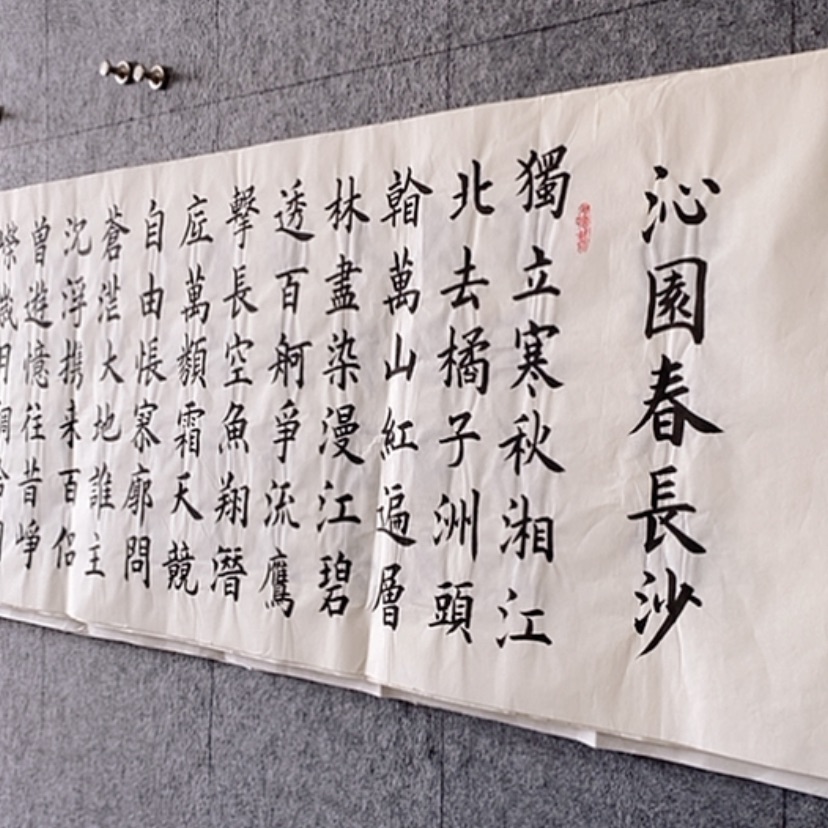 沁園春長沙
獨立寒秋湘江
北去橘子洲頭
看萬山紅遍層
林盡染漫江碧
透百舸爭流鷹
擊長空魚翔潛
底萬類霜天競
自由悵寥廓問
蒼茫大地誰主
沈浮携来百侶
曾遊憶往昔崢